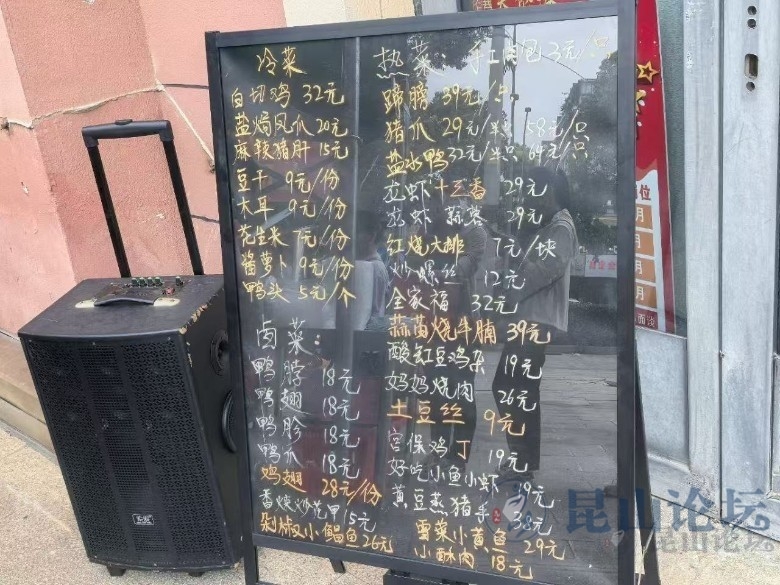 冷菜
白切鸡 32元
盐焗凤爪 20元
麻辣猪肝 15元
豆干 9元/份
木耳 9元/份
花生米 7元/份
酱萝卜 9元/份
鸭头 5元/个
卤菜:
鸭脖 18元
鸭翅 18元
鸭胗 18元
鸭爪 18元
鸡翅 28元/份
香辣炒花甲 15元
剁椒小鲳鱼 26元
热菜: 手工肉包 3元/只
蹄膀 39元/只
猪爪 29元/半只 58元/只
盐水鸭 32元/半只 64元/只
龙虾 十三香 29元
龙虾 蒜蓉 29元
红烧大排 7元/块
炒螺丝 12元
全家福 32元
蒜苗烧牛腩 39元
酸豇豆鸡杂 19元
妈妈烧肉 26元
土豆丝 9元
宫保鸡丁 19元
好吃小鱼小虾 39元
黄豆蒸猪手 38元
雪菜小黄鱼 29元
小酥肉 18元
位
月
月
月
昆山论坛
昆山论坛